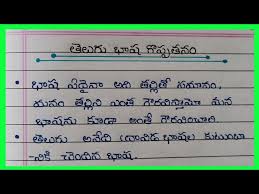 తెలుగు భాష గొప్పతనం
• భాష ఏదైనా అది తల్లితో సమానం,
మనం తల్లిని ఎంత గౌరవిస్తామో మన
భాషను కూడా అంతే గౌరవించాలి
• తెలుగు అనేది ద్రావిడ భాషల కుటుంబా
-నికి చెందిన భాష.